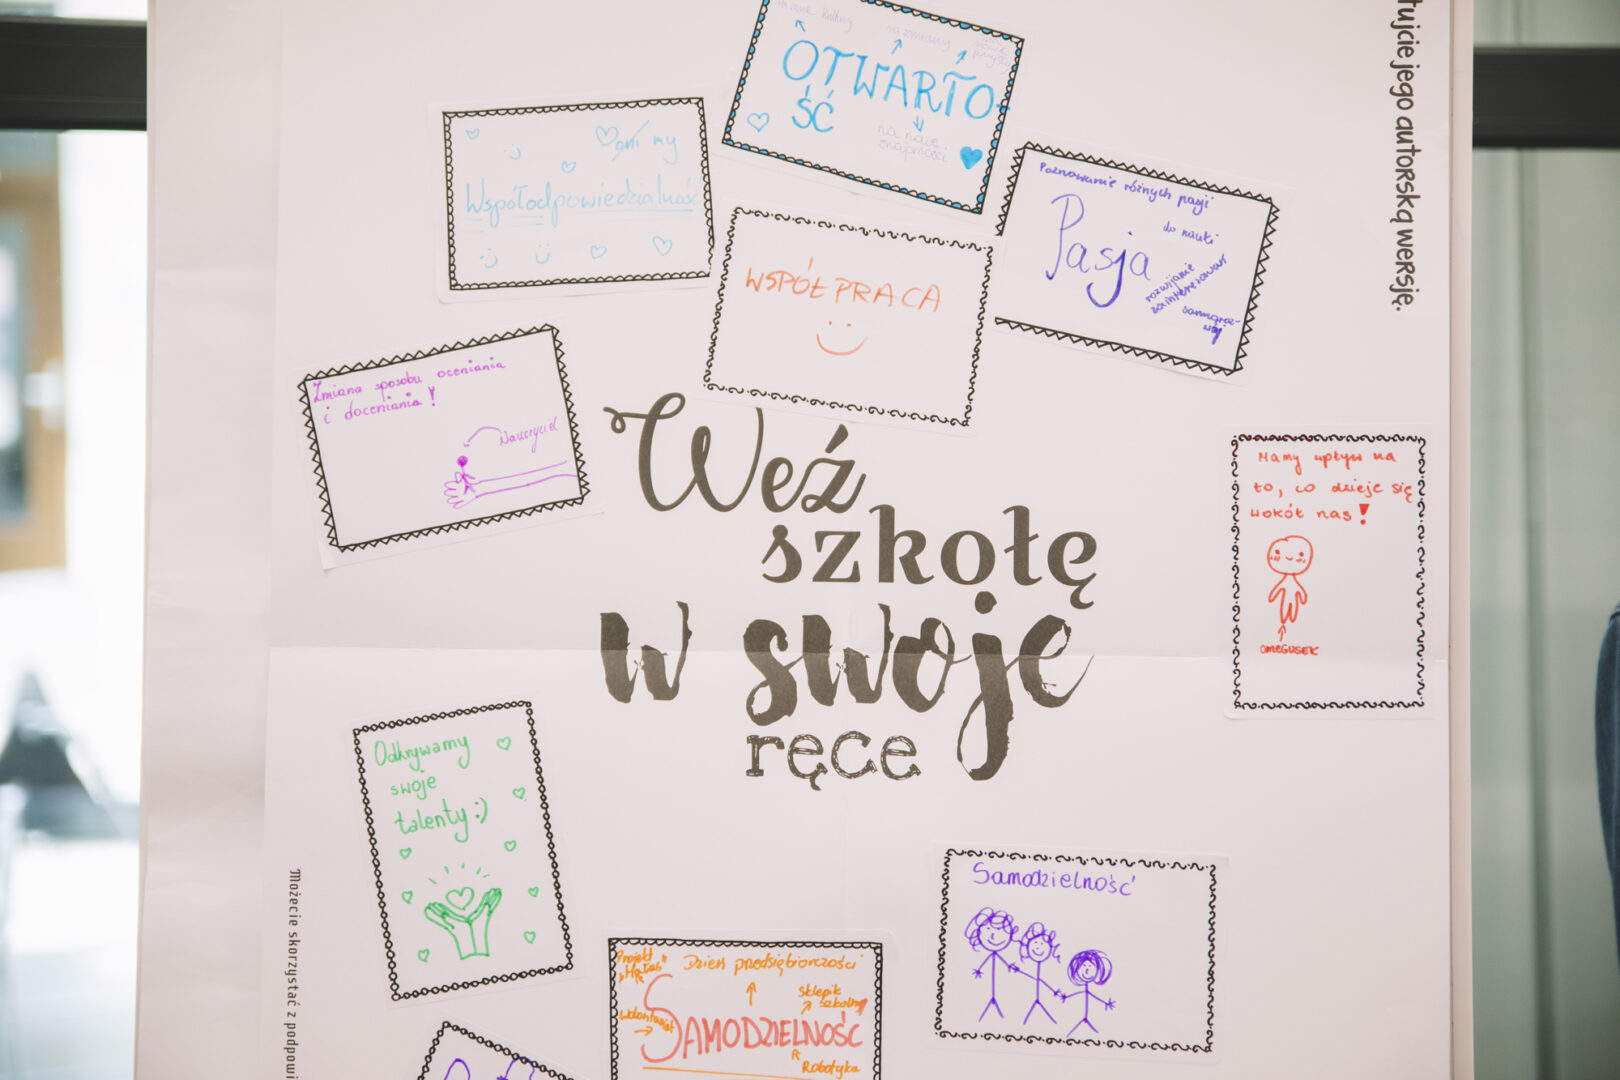 tujcie jego autorską wersję.
na zmiany
OTWARTO-
ŚĆ
na nowe
znajomości
oni my
Współodpowiedzialność
Poznawanie różnych pasji
do nauki
Pasja
rozwijanie
zainteresowań
WSPÓŁPRACA
Zmiana sposobu oceniania
i doceniania!
Nauczyciel
Weź
szkołę
w swoje
ręce
Mamy wpływ na
to, co dzieje się
wokół nas!
OMEGUSEK
Odkrywamy
swoje
talenty :)
Samodzielność
Projekt
Dzień przedsiębiorczości
sklepik
szkolny
Wolontariat
SAMODZIELNOŚĆ
Robotyka
Możecie skorzystać z podpowi